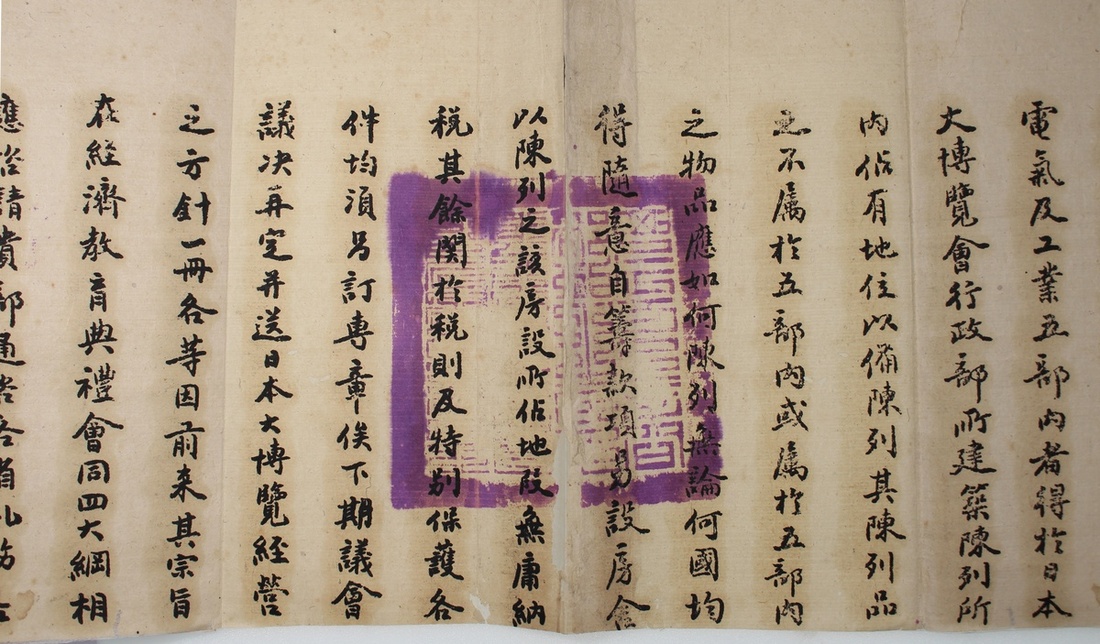 電氣及工業五部內者得於日本
大博覽會行政部所建築陳列所
內佔有地位以備陳列其陳列品
之不屬於五部內或屬於五部內
之物品應如何陳列無論何國均
得隨意自籌款項另設房舍
以陳列之該房設所佔地段無庸納
稅其餘関於稅則及特別保護各
件均須另訂専章俟下期議會
議决再定并送日本大博覽經營
之方針一冊各等因前来其宗旨
在経濟教育典禮會同四大綱相
應咨請貴部通咨各省